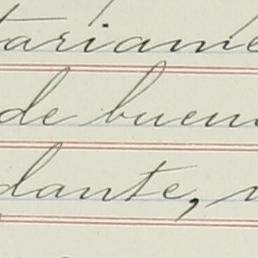 tariame
de buen
dante,